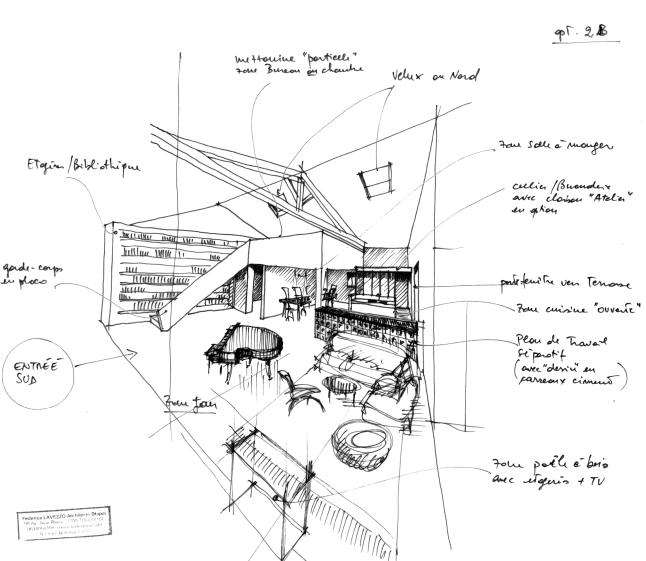 opt. 2.B
mezzanine "partielle"
zone Bureau ou chambre
Velux au Nord
Etagères/Bibliothèque
zone salle à manger
cellier/Buanderie
avec cloison "Atelier"
en option
garde-corps
en placo
porte-fenêtre vers Terrasse
zone cuisine "ouverte"
Plan de Travail
séparatif
(avec "dessin" en
carreaux ciment)
ENTRÉE
SUD
zone
zone poêle à bois
avec étagères + TV
Federica LAVEZZO Architecte